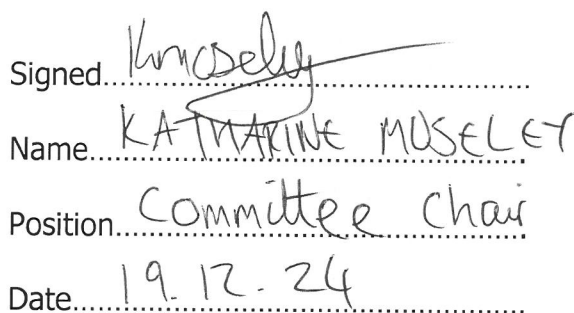 Signed Kmoseley
Name KATHARINE MOSELEY
Position Committee Chair
Date 19.12.24